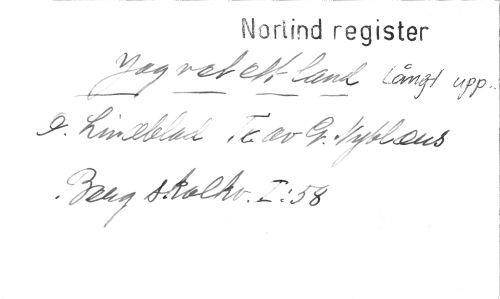 Norlind register
Jag vet ett land långt upp..
O. Lindblad Tx. av G. Nyblæus
Berg skolkv. I:58